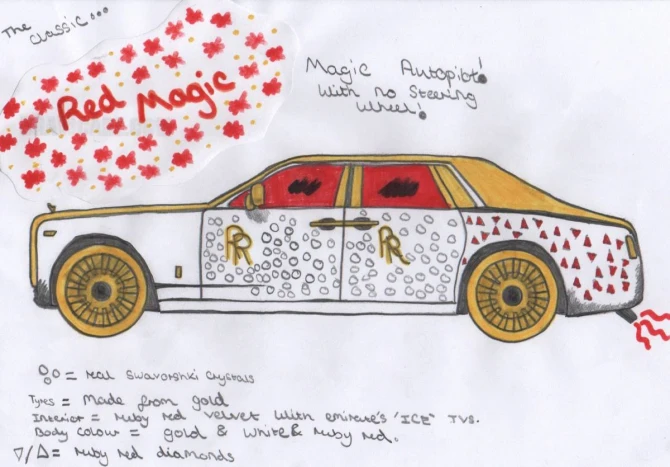 The
Classic...
Red Magic
Magic Autopilot!
With no Steering
Wheel!
RR
RR
= real Swavorshki Crystals
Tyres = Made from gold
Interior = ruby red velvet with emirate's 'ICE" TVs.
Body Colour = gold & white & ruby red.
▽/△ = ruby red diamonds